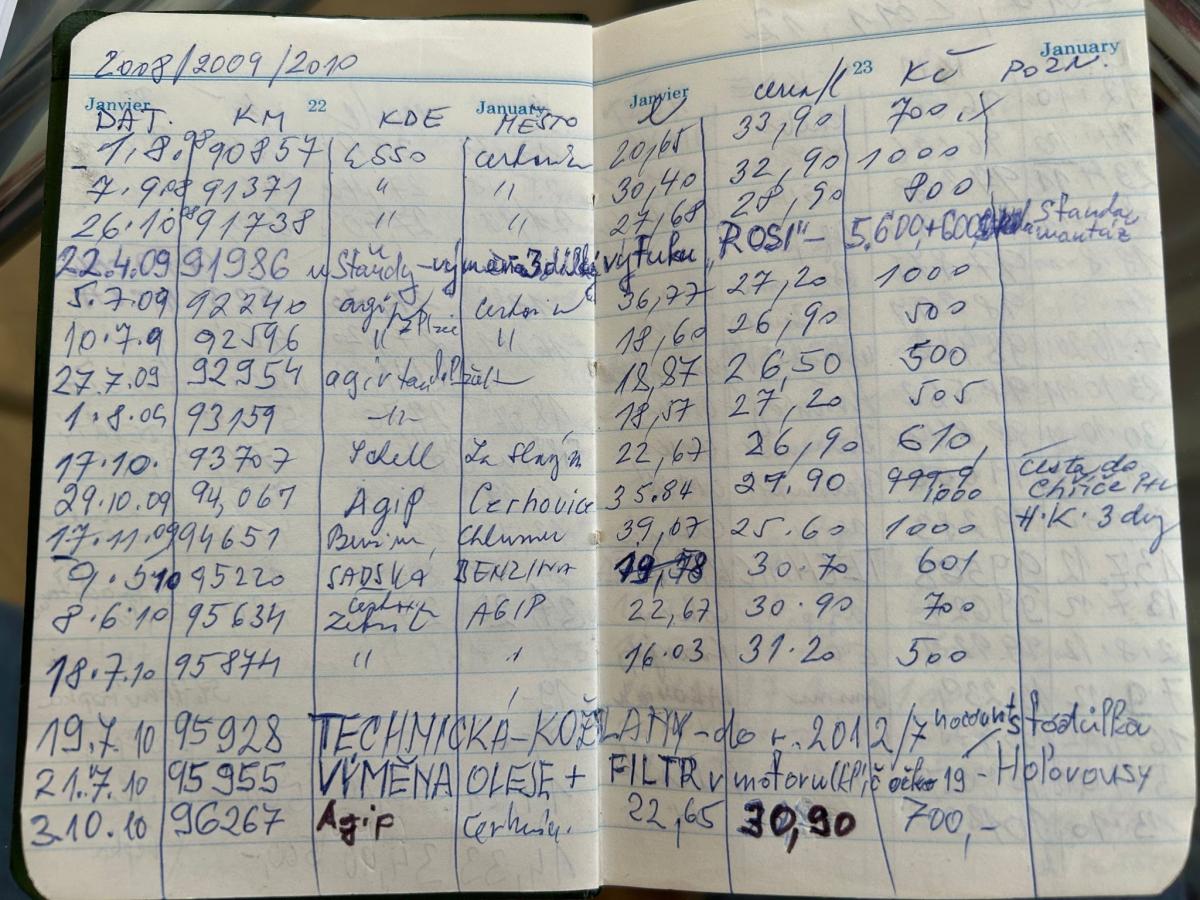 2008/2009/2010
Janvier 22 January Janvier 23 January
DAT. KM KDE MĚSTO cena/l KČ POZN.
1.8.08 90857 ESSO 20,65 33,90 700,
7.908 91371 " " 30,40 32,90 1000
26.10 08 91738 " " 27,68 28,90 800
22.4.09 91986 u Standy - výměna 3 výfuku "ROSI" - 5.600+600 Standa montáž
5.7.09 92240 agip 36,77 27,20 1000
10.7.9 92596 " " 18,60 26,90 500
27.7.09 92954 18,87 26,50 500
1.8.09 93159 -"- 18,57 27,20 505
17.10. 93707 Schell 22,67 26,90 610,
29.10.09 94,067 AgiP Cerhovice 35.84 27,90 1000 Cesta do
17.11.09 94651 39,07 25.60 1000 H.K. 3 dny
9.5 10 95220 SADSKÁ BENZINA 19,58 30.70 601
8.6.10 95634 AGIP 22,67 30.90 700
18.7.10 95874 " 16.03 31.20 500
19.7.10 95928 TECHNICKÁ-KOŽLANY - do r. 2012/7
21.7.10 95955 VÝMĚNA OLEJE + FILTR v motoru 19 - Holovousy
3.10.10 96267 Agip 22,65 30,90 700,-